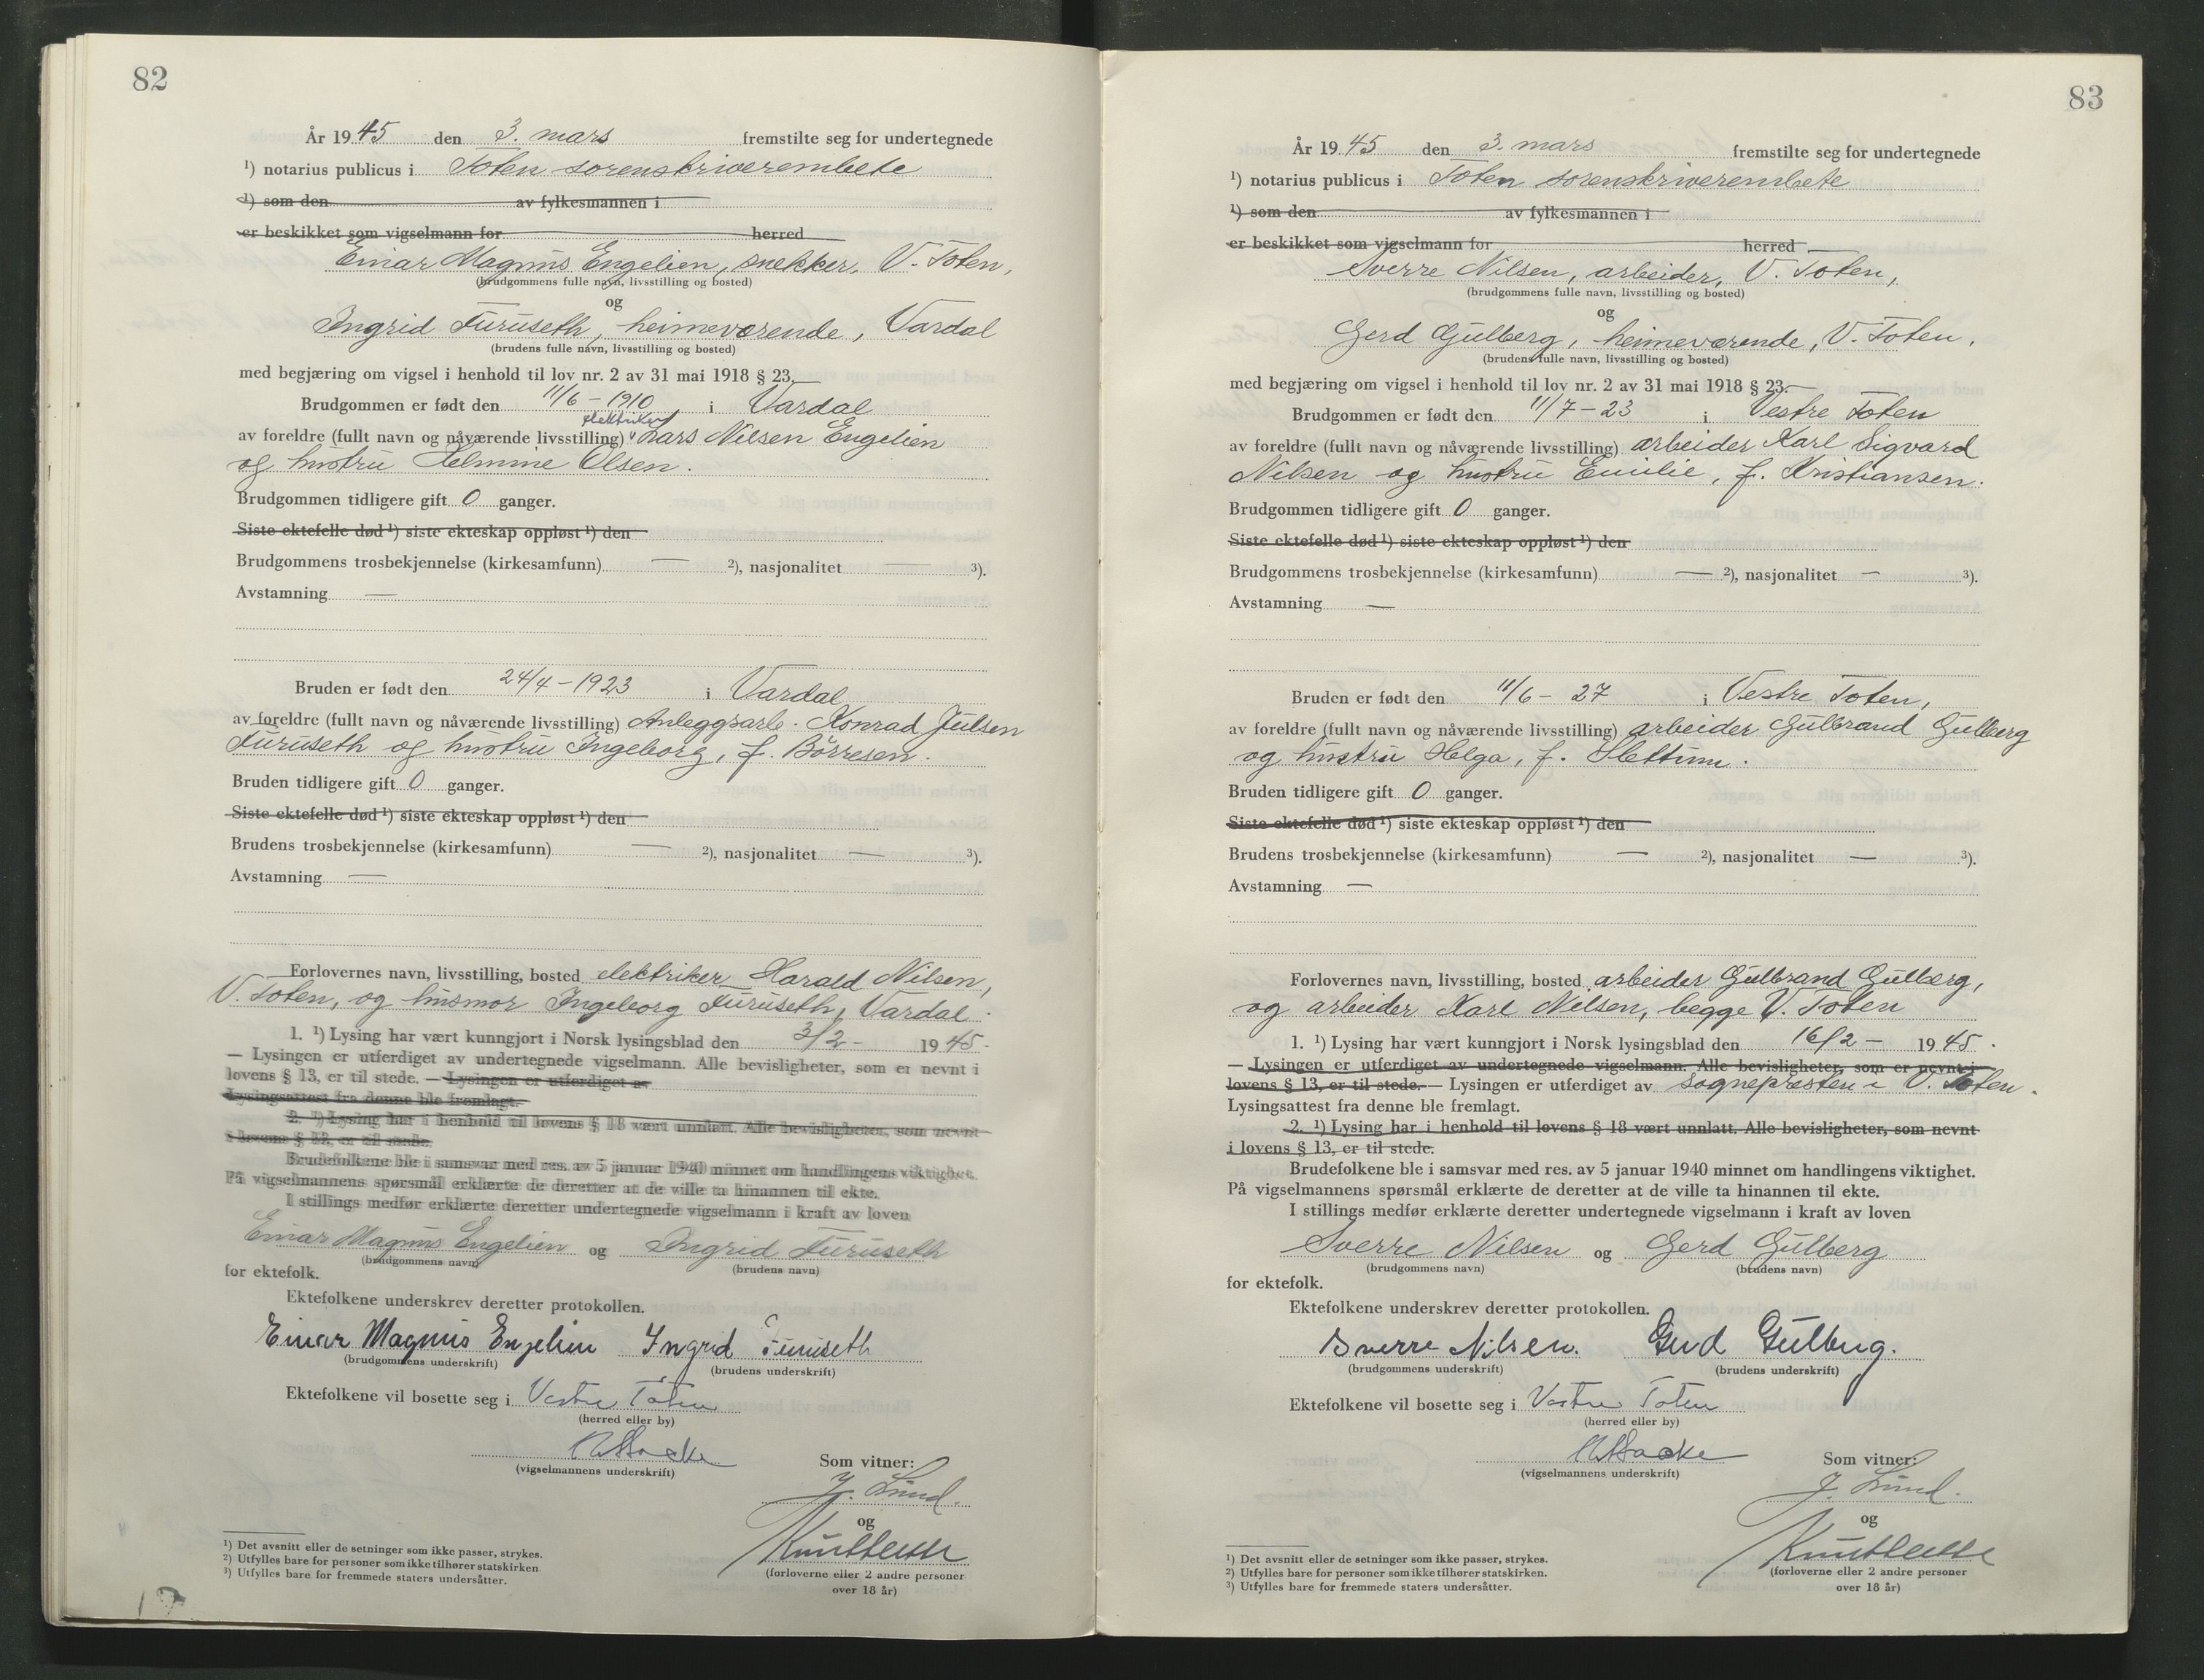 82
År 1945 den 3. mars fremstilte seg for undertegnede
¹) notarius publicus i Toten sorenskriverembete
¹) som den av fylkesmannen i
er beskikket som vigselmann for herred
Einar Magnus Engelien, snekker, V. Toten,
(brudgommens fulle navn, livsstilling og bosted)
og
Ingrid Furuseth, heimeværende, Vardal
(brudens fulle navn, livsstilling og bosted)
med begjæring om vigsel i henhold til lov nr. 2 av 31 mai 1918 § 23.
Brudgommen er født den 11/6 - 1910 i Vardal
elektriker
av foreldre (fullt navn og nåværende livsstilling) Lars Nilsen Engelien
og hustru Helmine Olsen.
Brudgommen tidligere gift 0 ganger.
Siste ektefelle død ¹) siste ekteskap oppløst ¹) den
Brudgommens trosbekjennelse (kirkesamfunn) — ²), nasjonalitet — ³).
Avstamning —
Bruden er født den 24/4 - 1923 i Vardal
av foreldre (fullt navn og nåværende livsstilling) Anleggsarb. Konrad Julsen
Furuseth og hustru Ingeborg, f. Börresen.
Bruden tidligere gift 0 ganger.
Siste ektefelle død ¹) siste ekteskap oppløst ¹) den
Brudens trosbekjennelse (kirkesamfunn) — ²), nasjonalitet — ³).
Avstamning —
Forlovernes navn, livsstilling, bosted elektriker Harald Nilsen,
V. Toten, og husmor Ingeborg Furuseth, Vardal.
1. ¹) Lysing har vært kunngjort i Norsk lysingsblad den 3/2 - 1945.
— Lysingen er utferdiget av undertegnede vigselmann. Alle bevisligheter, som er nevnt i
lovens § 13, er til stede. — Lysingen er utferdiget av
Lysingsattest fra denne ble fremlagt.
2. ¹) Lysing har i henhold til lovens § 18 vært unnlatt. Alle bevisligheter, som nevnt
i lovens § 13, er til stede.
Brudefolkene ble i samsvar med res. av 5 januar 1940 minnet om handlingens viktighet.
På vigselmannens spørsmål erklærte de deretter at de ville ta hinannen til ekte.
I stillings medfør erklærte deretter undertegnede vigselmann i kraft av loven
Einar Magnus Engelien og Ingrid Furuseth
(brudgommens navn) (brudens navn)
for ektefolk.
Ektefolkene underskrev deretter protokollen.
Einar Magnus Engelien Ingrid Furuseth
(brudgommens underskrift) (brudens underskrift)
Ektefolkene vil bosette seg i Vestre Toten
(herred eller by)
(vigselmannens underskrift)
Som vitner:
J. Lund.
og
(forloverne eller 2 andre personer
over 18 år)
¹) Det avsnitt eller de setninger som ikke passer, strykes.
²) Utfylles bare for personer som ikke tilhører statskirken.
³) Utfylles bare for fremmede staters undersåtter.
83
År 1945 den 3. mars fremstilte seg for undertegnede
¹) notarius publicus i Toten sorenskriverembete
¹) som den av fylkesmannen i
er beskikket som vigselmann for herred
Sverre Nilsen, arbeider, V. Toten,
(brudgommens fulle navn, livsstilling og bosted)
og
Gerd Gulberg, heimeværende, V. Toten.
(brudens fulle navn, livsstilling og bosted)
med begjæring om vigsel i henhold til lov nr. 2 av 31 mai 1918 § 23.
Brudgommen er født den 11/7 - 23 i Vestre Toten
av foreldre (fullt navn og nåværende livsstilling) arbeider Karl Sigvard
Nilsen og hustru Emilie, f. Kristiansen.
Brudgommen tidligere gift 0 ganger.
Siste ektefelle død ¹) siste ekteskap oppløst ¹) den
Brudgommens trosbekjennelse (kirkesamfunn) — ²), nasjonalitet — ³).
Avstamning —
Bruden er født den 11/6 - 27 i Vestre Toten,
av foreldre (fullt navn og nåværende livsstilling) arbeider Gulbrand Gulberg
og hustru Helga, f. Slettum.
Bruden tidligere gift 0 ganger.
Siste ektefelle død ¹) siste ekteskap oppløst ¹) den
Brudens trosbekjennelse (kirkesamfunn) — ²), nasjonalitet — ³).
Avstamning —
Forlovernes navn, livsstilling, bosted arbeider Gulbrand Gulberg,
og arbeider Karl Nilsen, begge V. Toten
1. ¹) Lysing har vært kunngjort i Norsk lysingsblad den 16/2 - 1945.
— Lysingen er utferdiget av undertegnede vigselmann. Alle bevisligheter, som er nevnt i
lovens § 13, er til stede. — Lysingen er utferdiget av sognepresten i V. Toten.
Lysingsattest fra denne ble fremlagt.
2. ¹) Lysing har i henhold til lovens § 18 vært unnlatt. Alle bevisligheter, som nevnt
i lovens § 13, er til stede.
Brudefolkene ble i samsvar med res. av 5 januar 1940 minnet om handlingens viktighet.
På vigselmannens spørsmål erklærte de deretter at de ville ta hinannen til ekte.
I stillings medfør erklærte deretter undertegnede vigselmann i kraft av loven
Sverre Nilsen og Gerd Gulberg
(brudgommens navn) (brudens navn)
for ektefolk.
Ektefolkene underskrev deretter protokollen.
Sverre Nilsen. Gerd Gulberg.
(brudgommens underskrift) (brudens underskrift)
Ektefolkene vil bosette seg i Vestre Toten
(herred eller by)
(vigselmannens underskrift)
Som vitner:
J. Lund.
og
(forloverne eller 2 andre personer
over 18 år)
¹) Det avsnitt eller de setninger som ikke passer, strykes.
²) Utfylles bare for personer som ikke tilhører statskirken.
³) Utfylles bare for fremmede staters undersåtter.